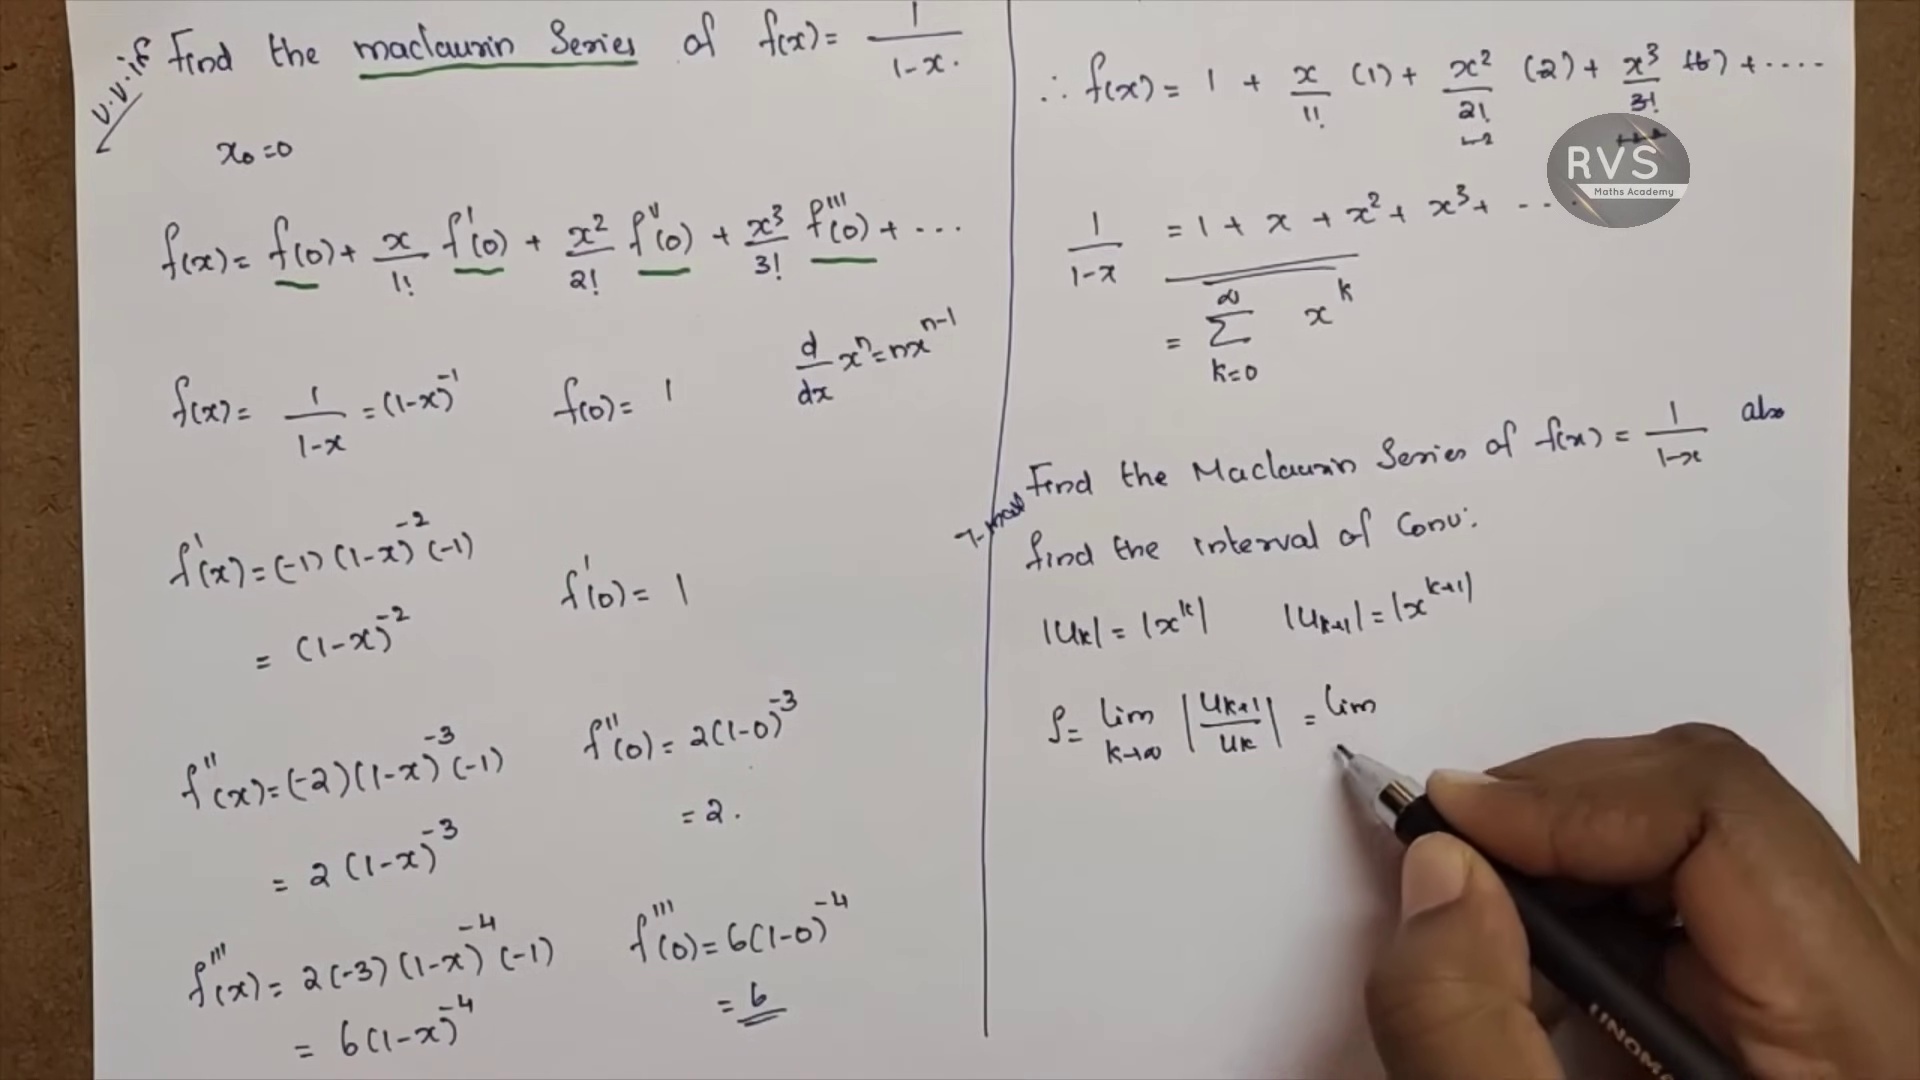 v.v.if
Find the maclaurin Series of f(x) = 1/(1-x).
x₀=0
f(x) = f(0) + x/1! f'(0) + x²/2! f''(0) + x³/3! f'''(0) + ...
d/dx xⁿ = nxⁿ⁻¹
f(x) = 1/(1-x) = (1-x)⁻¹ f(0) = 1
f'(x) = (-1)(1-x)⁻²(-1)
= (1-x)⁻² f'(0) = 1
f''(x) = (-2)(1-x)⁻³(-1) f''(0) = 2(1-0)⁻³
= 2(1-x)⁻³ = 2.
f'''(x) = 2(-3)(1-x)⁻⁴(-1) f'''(0) = 6(1-0)⁻⁴
= 6(1-x)⁻⁴ = 6
∴ f(x) = 1 + x/1! (1) + x²/2! (2) + x³/3! (6) + ....
RVS
Maths Academy
1/(1-x) = 1 + x + x² + x³ + ...
= ∑ₖ₌₀^∞ xᵏ
Find the Maclaurin Series of f(x) = 1/(1-x) also
find the interval of Conv:
|uₖ| = |xᵏ| |uₖ₊₁| = |xᵏ⁺¹|
ρ = lim k→∞ |uₖ₊₁/uₖ| = lim